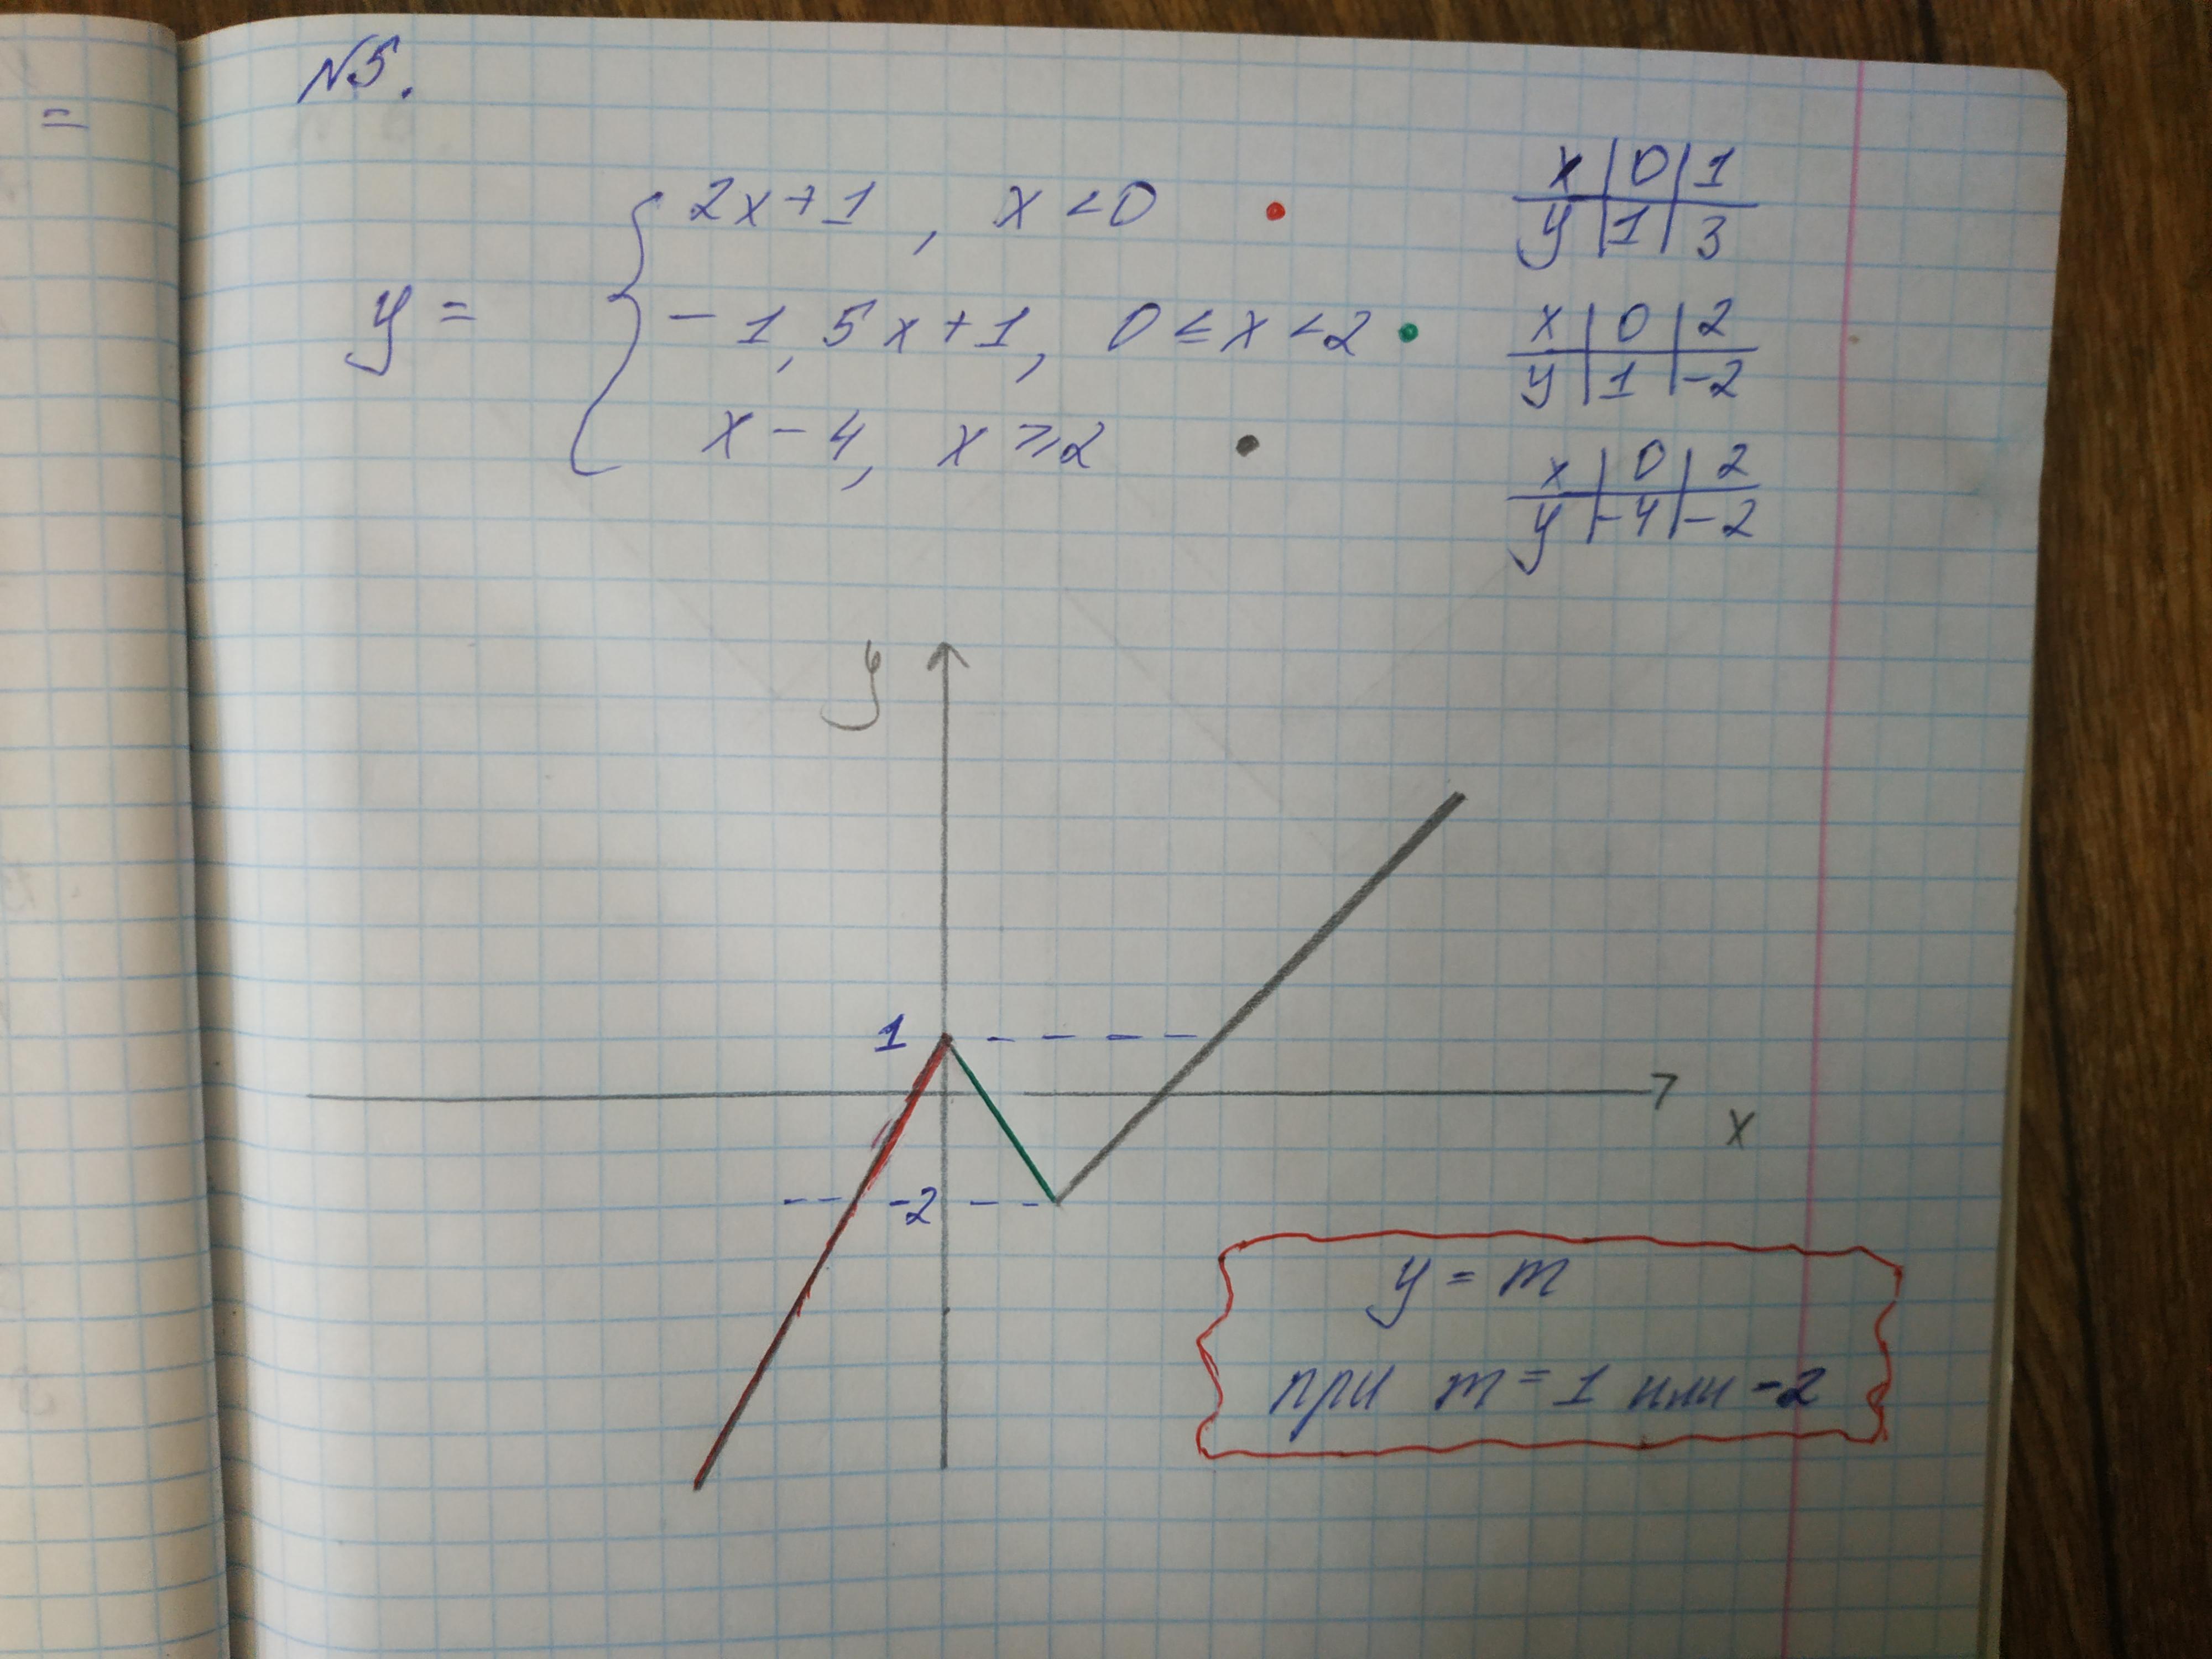 =
N5.
y =
2x+1, x<0
-1,5x+1, 0≤x<2
x-4, x≥2
x | 0 | 1
y | 1 | 3
x | 0 | 2
y | 1 | -2
x | 0 | 2
y | -4 | -2
y
1
x
-2
y = m
при m = 1 или -2